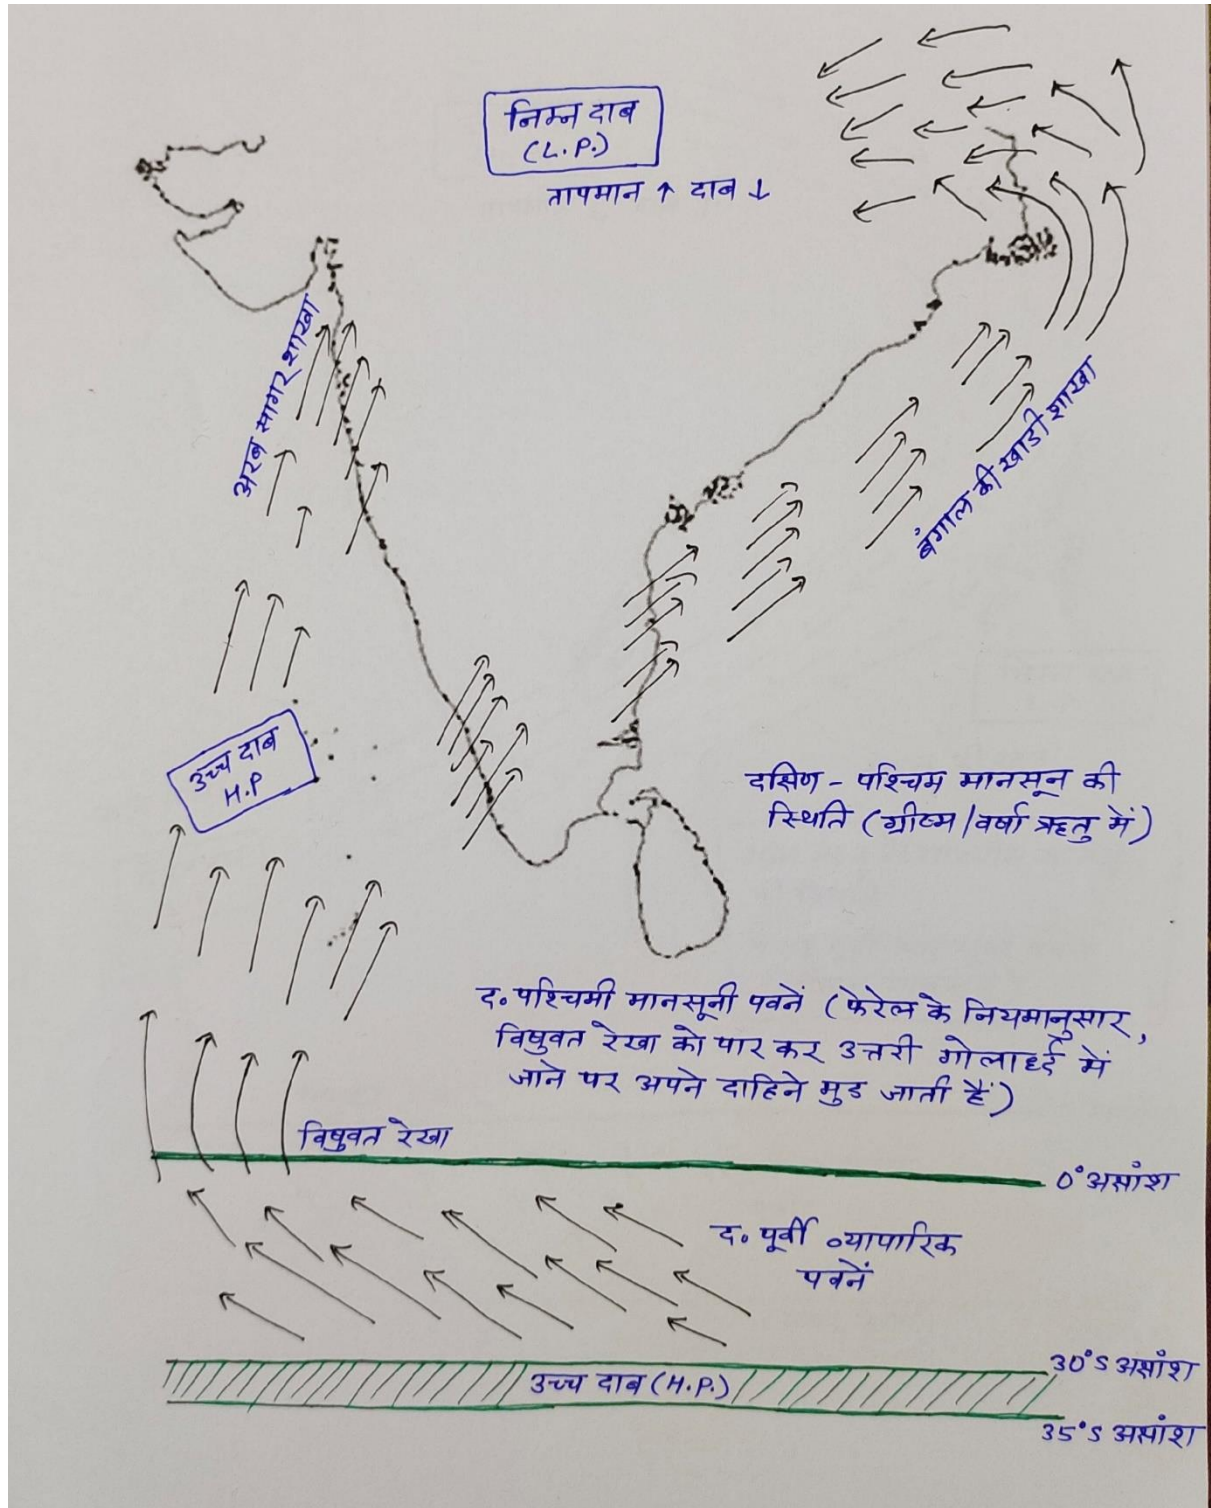 निम्न दाब
(L.P.)
तापमान ↑ दाब ↓
अरब सागर शाखा
बंगाल की खाडी शाखा
उच्च दाब
H.P
दक्षिण - पश्चिम मानसून की
स्थिति (ग्रीष्म/वर्षा ऋतु में)
द॰ पश्चिमी मानसूनी पवनें (फेरेल के नियमानुसार,
विषुवत रेखा को पार कर उत्तरी गोलार्ध्द में
जाने पर अपने दाहिने मुड जाती हैं)
विषुवत रेखा
0° अक्षांश
द॰ पूर्वी व्यापारिक
पवनें
30°S अक्षांश
उच्च दाब (H.P.)
35°S अक्षांश